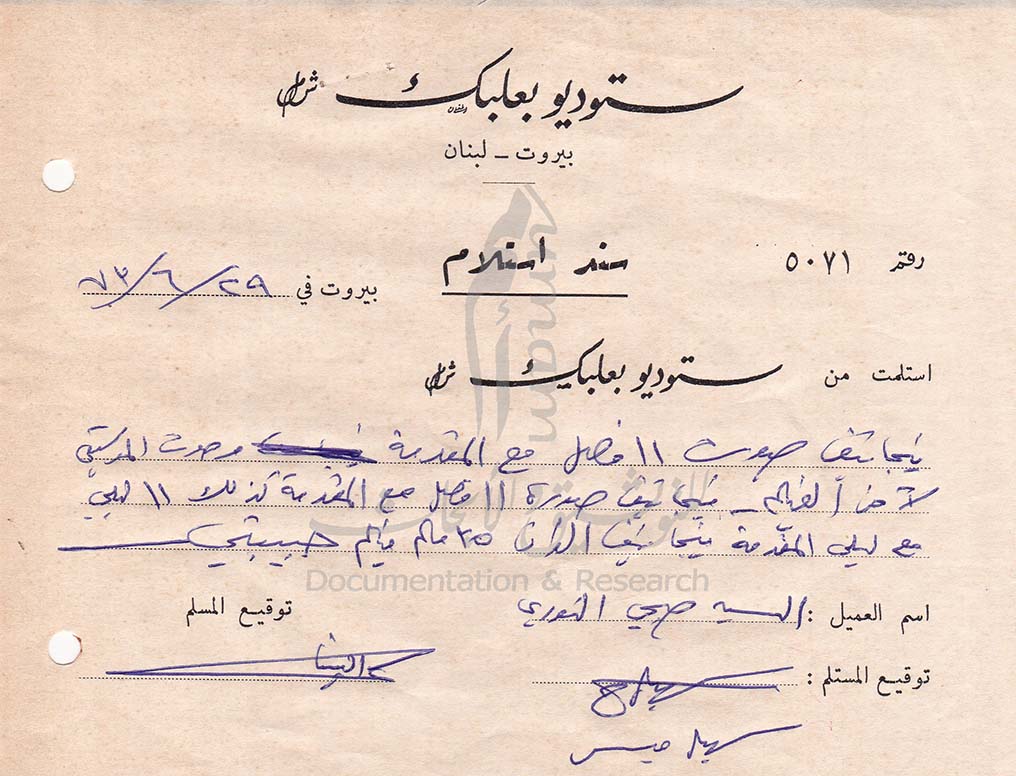 ستوديو بعلبك ش م ل
بيروت - لبنان
رقم ٥٠٧١
سند استلام
بيروت في ٢٩/٦/٧٣
استلمت من ستوديو بعلبك ش م ل
نيجاتيف صوت ١١ فصل مع المقدمة وصوت الموسيقى
من الفيلم - نيجاتيف صورة ١١ فصل مع المقدمة كذلك ١١
مع المقدمة نيجاتيف الوان ٣٥ ملم فيلم حبيبتي
اسم العميل : السيد صبحي النوري
توقيع المسلم
توقيع المستلم :
سهيل
أمم
umam
للتوثيق والأبحاث
Documentation & Research